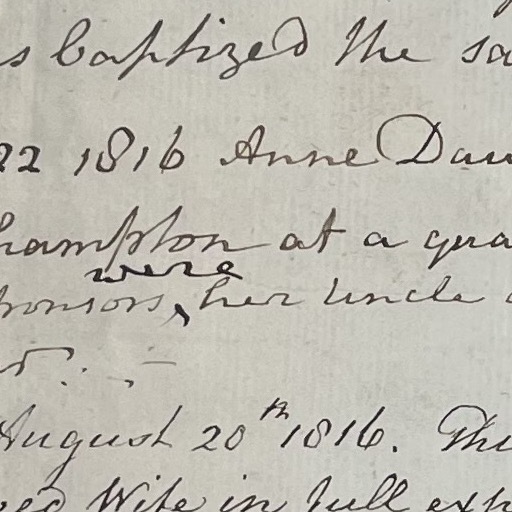 s baptized the sa
22 1816 Anne Dau
hampton at a qua
were
ponsors, her Uncle
August 20th 1816. Thi
ved Wife in full exp